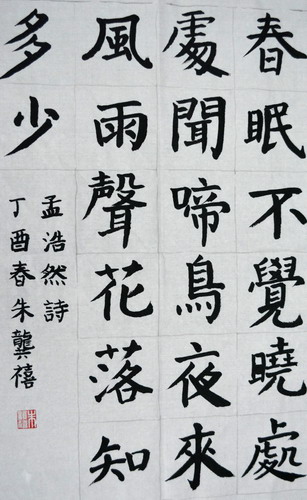 春眠不覺曉處
處聞啼鳥夜來
風雨聲花落知
多少
孟浩然詩
丁酉春朱龔禧